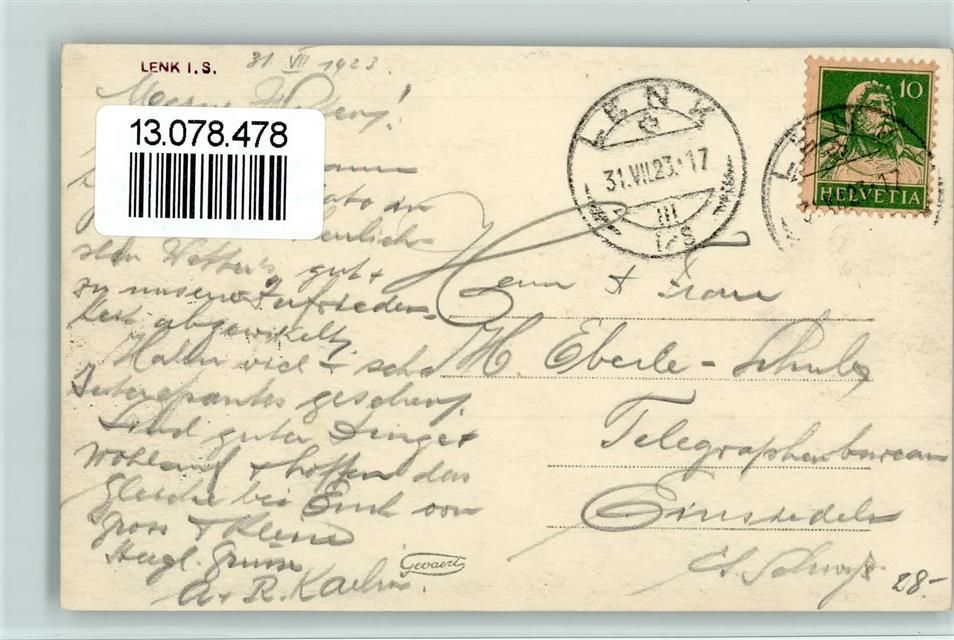 LENK I. S.
31 VII 1923
13.078.478
gut +
zu unserer Zufrieden-
heit abgewickelt,
Haben viel + sehr
Interessantes gesehen!
Sind guter Dinge +
wohlauf + hoffen das
Gleiche bei Euch von
gross + Klein
Herzl. Grüsse
A + R. Kaelin.
Gevaert
LENK
31.VII.23.-17
10
HELVETIA
Herrn + Frau
M. Eberle-Schuler
Telegraphenbureau
Einsiedeln
Ct. Schwyz
28.-